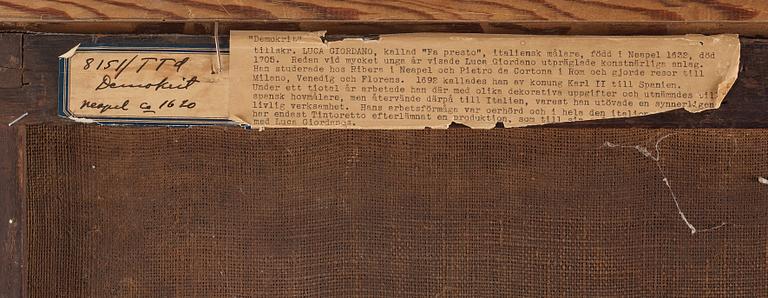 8151/TTd
Demokrit
neapel ca 1620
"Demokrit"
tillskr. LUCA GIORDANO, kallad "Fa presto", italiensk målare, född i Neapel 1632, död
1705. Redan vid mycket unga år visade Luca Giordano utpräglade konstnärliga anlag.
Han studerade hos Ribera i Neapel och Pietro da Cortona i Rom och gjorde resor till
Milano, Venedig och Florens. 1692 kallades han av konung Karl II till Spanien.
Under ett tiotal år arbetade han där med olika dekorativa uppgifter och utnämndes till
spansk hovmålare, men återvände därpå till Italien, varest han utövade en synnerligen
livlig verksamhet. Hans arbetsförmåga var oerhörd och i hela den italien
har endast Tintoretto efterlämnat en produktion, som till
med Luca Giordanos.